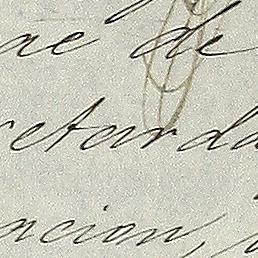 ae de
retarda
ncion,